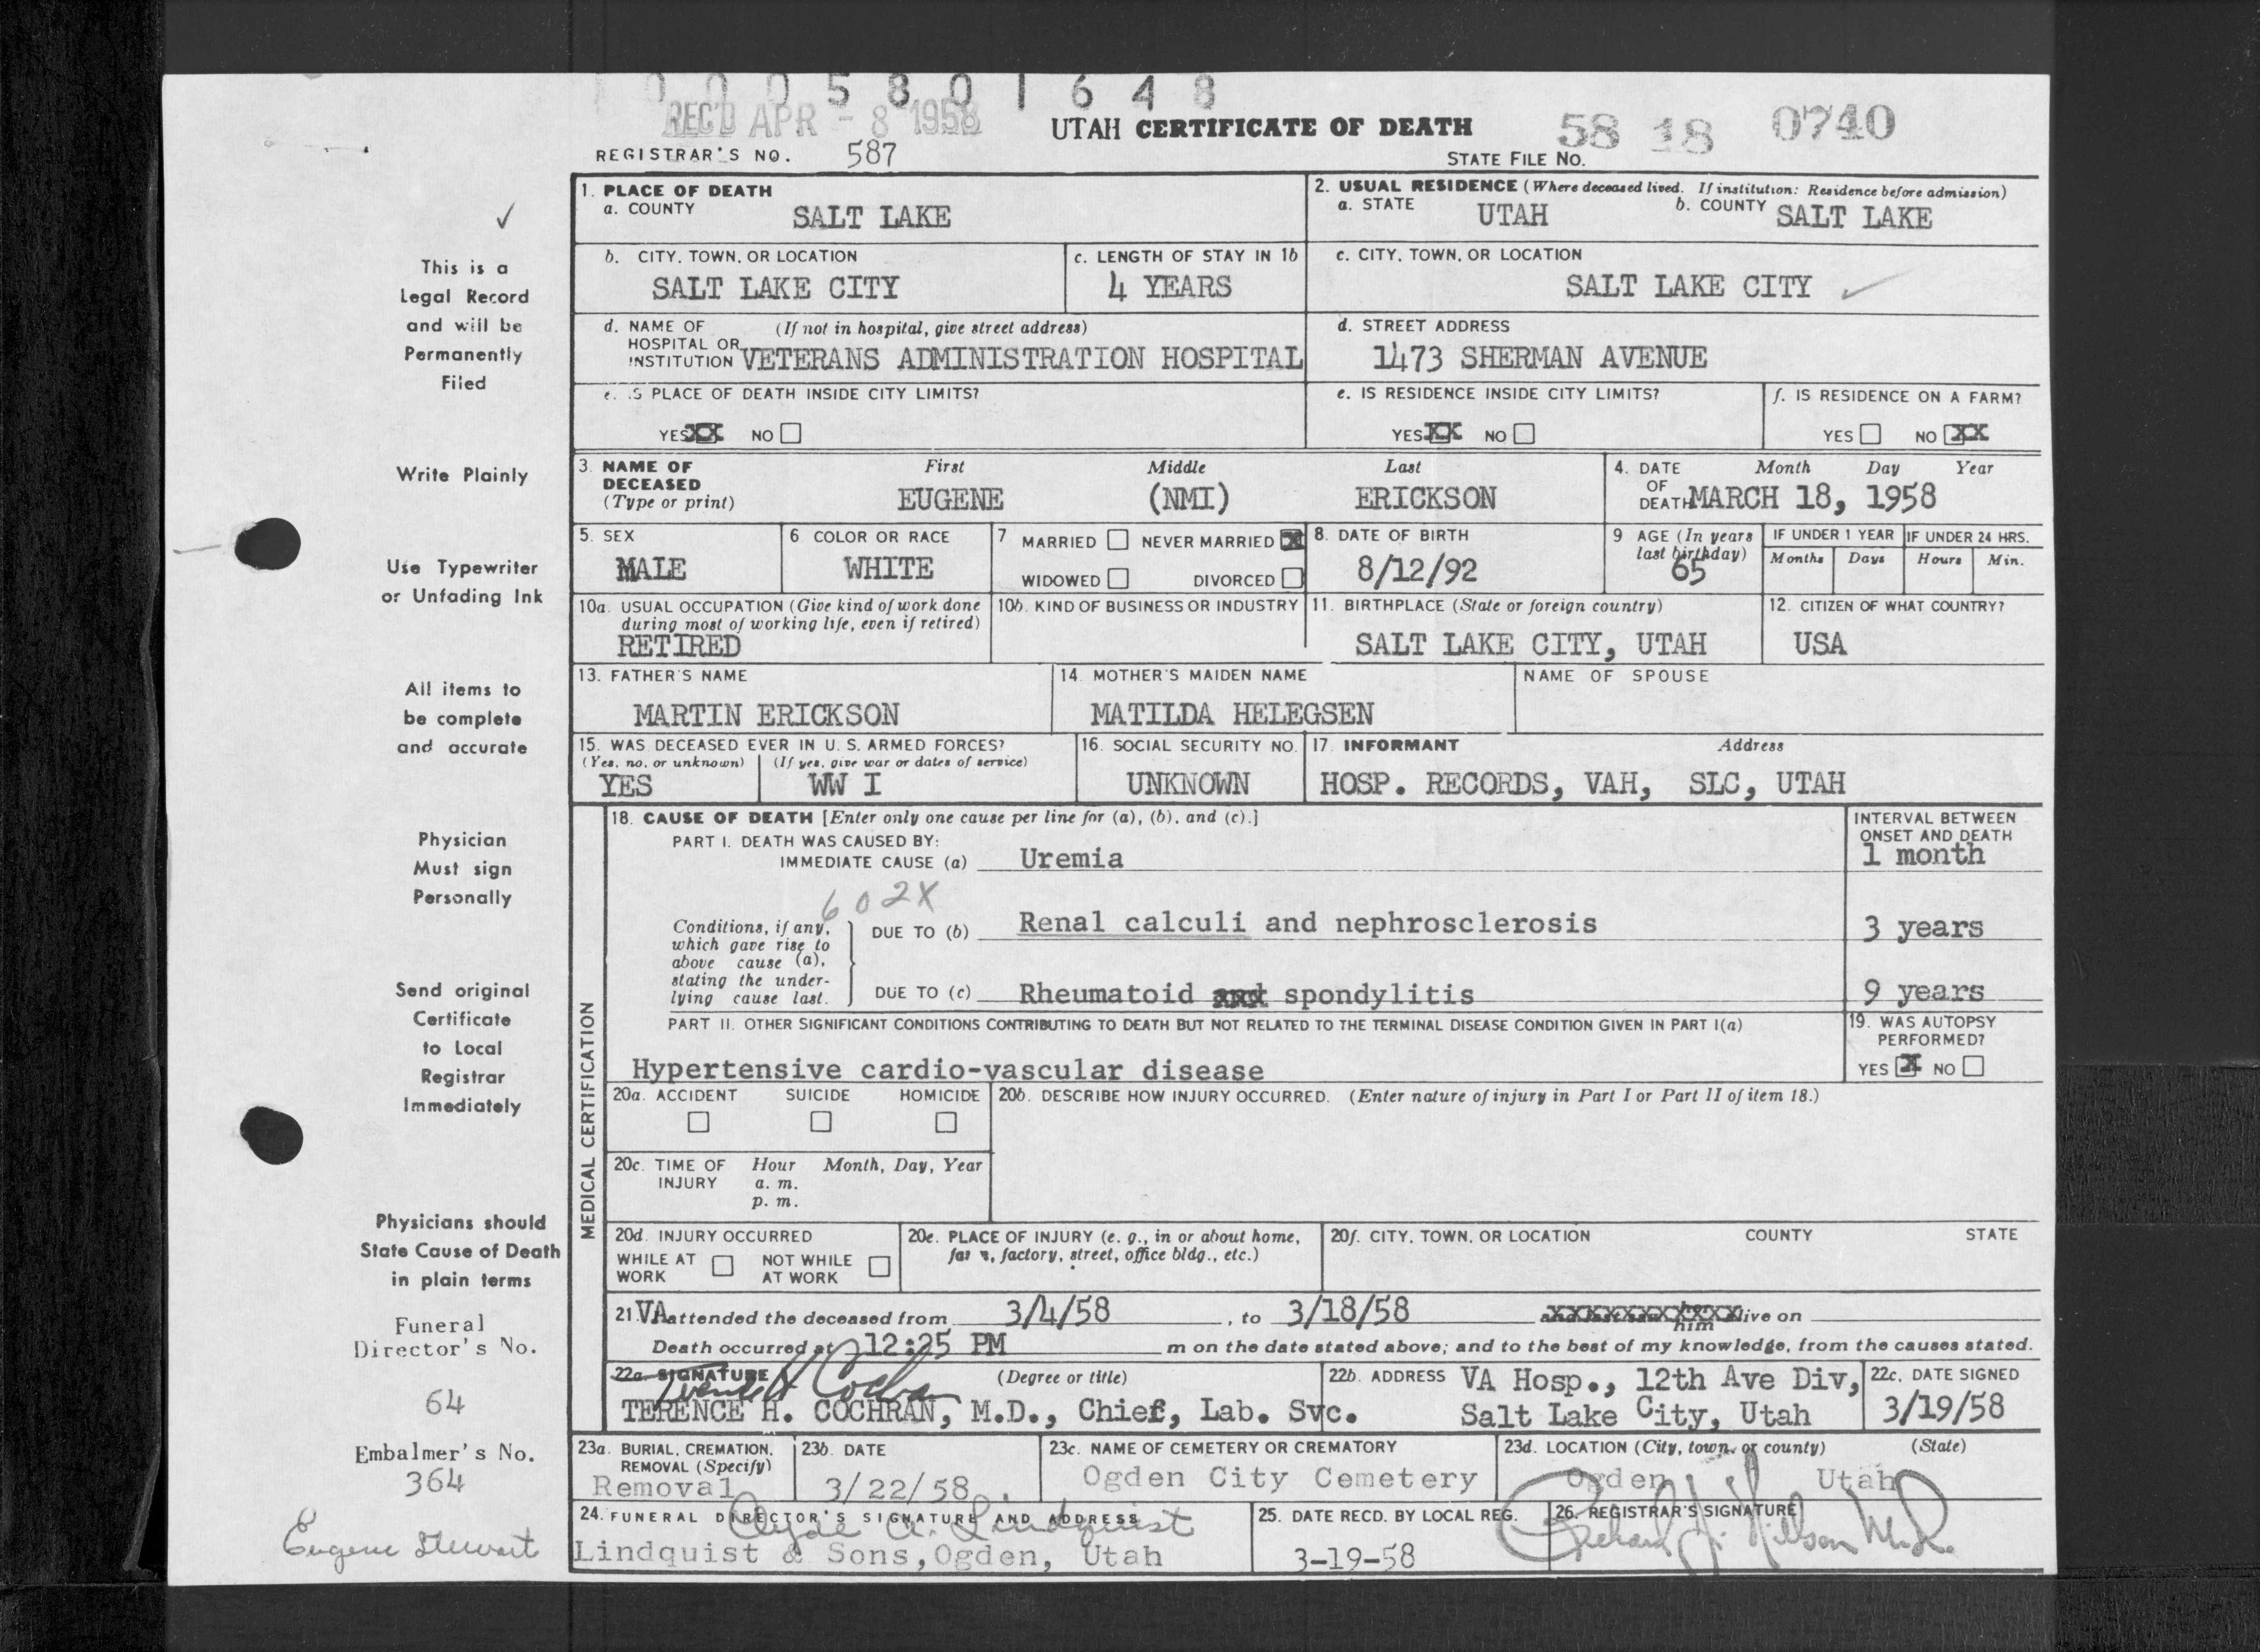 0 0 0 5 8 0 1 6 4 8
REC'D APR - 8 1958
UTAH CERTIFICATE OF DEATH
58 18 0740
REGISTRAR'S NO. 587
STATE FILE No.
✓
This is a
Legal Record
and will be
Permanently
Filed
Write Plainly
Use Typewriter
or Unfading Ink
All items to
be complete
and accurate
Physician
Must sign
Personally
Send original
Certificate
to Local
Registrar
Immediately
Physicians should
State Cause of Death
in plain terms
Funeral
Director's No.
64
Embalmer's No.
364
Eugene Stewart
1. PLACE OF DEATH
a. COUNTY
SALT LAKE
2. USUAL RESIDENCE (Where deceased lived. If institution: Residence before admission)
a. STATE UTAH b. COUNTY SALT LAKE
b. CITY, TOWN, OR LOCATION
SALT LAKE CITY
c. LENGTH OF STAY IN 1b
4 YEARS
c. CITY, TOWN, OR LOCATION
SALT LAKE CITY ✓
d. NAME OF (If not in hospital, give street address)
HOSPITAL OR
INSTITUTION VETERANS ADMINISTRATION HOSPITAL
d. STREET ADDRESS
1473 SHERMAN AVENUE
e. IS PLACE OF DEATH INSIDE CITY LIMITS?
YES XX NO
e. IS RESIDENCE INSIDE CITY LIMITS?
YES XX NO
f. IS RESIDENCE ON A FARM?
YES NO XX
3. NAME OF
DECEASED
(Type or print)
First Middle Last
EUGENE (NMI) ERICKSON
4. DATE Month Day Year
OF
DEATH MARCH 18, 1958
5. SEX
MALE
6 COLOR OR RACE
WHITE
7 MARRIED NEVER MARRIED X
WIDOWED DIVORCED
8. DATE OF BIRTH
8/12/92
9 AGE (In years
last birthday)
65
IF UNDER 1 YEAR
Months Days
IF UNDER 24 HRS.
Hours Min.
10a. USUAL OCCUPATION (Give kind of work done
during most of working life, even if retired)
RETIRED
10b. KIND OF BUSINESS OR INDUSTRY
11. BIRTHPLACE (State or foreign country)
SALT LAKE CITY, UTAH
12. CITIZEN OF WHAT COUNTRY?
USA
13. FATHER'S NAME
MARTIN ERICKSON
14. MOTHER'S MAIDEN NAME
MATILDA HELEGSEN
NAME OF SPOUSE
15. WAS DECEASED EVER IN U. S. ARMED FORCES?
(Yes, no, or unknown) (If yes, give war or dates of service)
YES WW I
16. SOCIAL SECURITY NO.
UNKNOWN
17. INFORMANT Address
HOSP. RECORDS, VAH, SLC, UTAH
MEDICAL CERTIFICATION
18. CAUSE OF DEATH [Enter only one cause per line for (a), (b), and (c).]
PART I. DEATH WAS CAUSED BY:
IMMEDIATE CAUSE (a) Uremia
INTERVAL BETWEEN
ONSET AND DEATH
1 month
602X
Conditions, if any,
which gave rise to
above cause (a),
stating the under-
lying cause last.
DUE TO (b) Renal calculi and nephrosclerosis
3 years
DUE TO (c) Rheumatoid and spondylitis
9 years
PART II. OTHER SIGNIFICANT CONDITIONS CONTRIBUTING TO DEATH BUT NOT RELATED TO THE TERMINAL DISEASE CONDITION GIVEN IN PART I(a)
Hypertensive cardio-vascular disease
19. WAS AUTOPSY
PERFORMED?
YES X NO
20a. ACCIDENT SUICIDE HOMICIDE
20b. DESCRIBE HOW INJURY OCCURRED. (Enter nature of injury in Part I or Part II of item 18.)
20c. TIME OF Hour Month, Day, Year
INJURY a. m.
p. m.
20d. INJURY OCCURRED
WHILE AT NOT WHILE
WORK AT WORK
20e. PLACE OF INJURY (e. g., in or about home,
farm, factory, street, office bldg., etc.)
20f. CITY, TOWN, OR LOCATION COUNTY STATE
21. VA attended the deceased from 3/4/58, to 3/18/58 XXXXXXXXXXX her him alive on
Death occurred at 12:25 PM m on the date stated above; and to the best of my knowledge, from the causes stated.
22a. SIGNATURE (Degree or title)
Terence H Cochran
TERENCE H. COCHRAN, M.D., Chief, Lab. Svc.
22b. ADDRESS VA Hosp., 12th Ave Div,
Salt Lake City, Utah
22c. DATE SIGNED
3/19/58
23a. BURIAL, CREMATION,
REMOVAL (Specify)
Removal
23b. DATE
3/22/58
23c. NAME OF CEMETERY OR CREMATORY
Ogden City Cemetery
23d. LOCATION (City, town, or county) (State)
Ogden Utah
24. FUNERAL DIRECTOR'S SIGNATURE AND ADDRESS
Clyde A. Lindquist
Lindquist & Sons, Ogden, Utah
25. DATE RECD. BY LOCAL REG.
3-19-58
26. REGISTRAR'S SIGNATURE
Richard J. Nilson M.D.